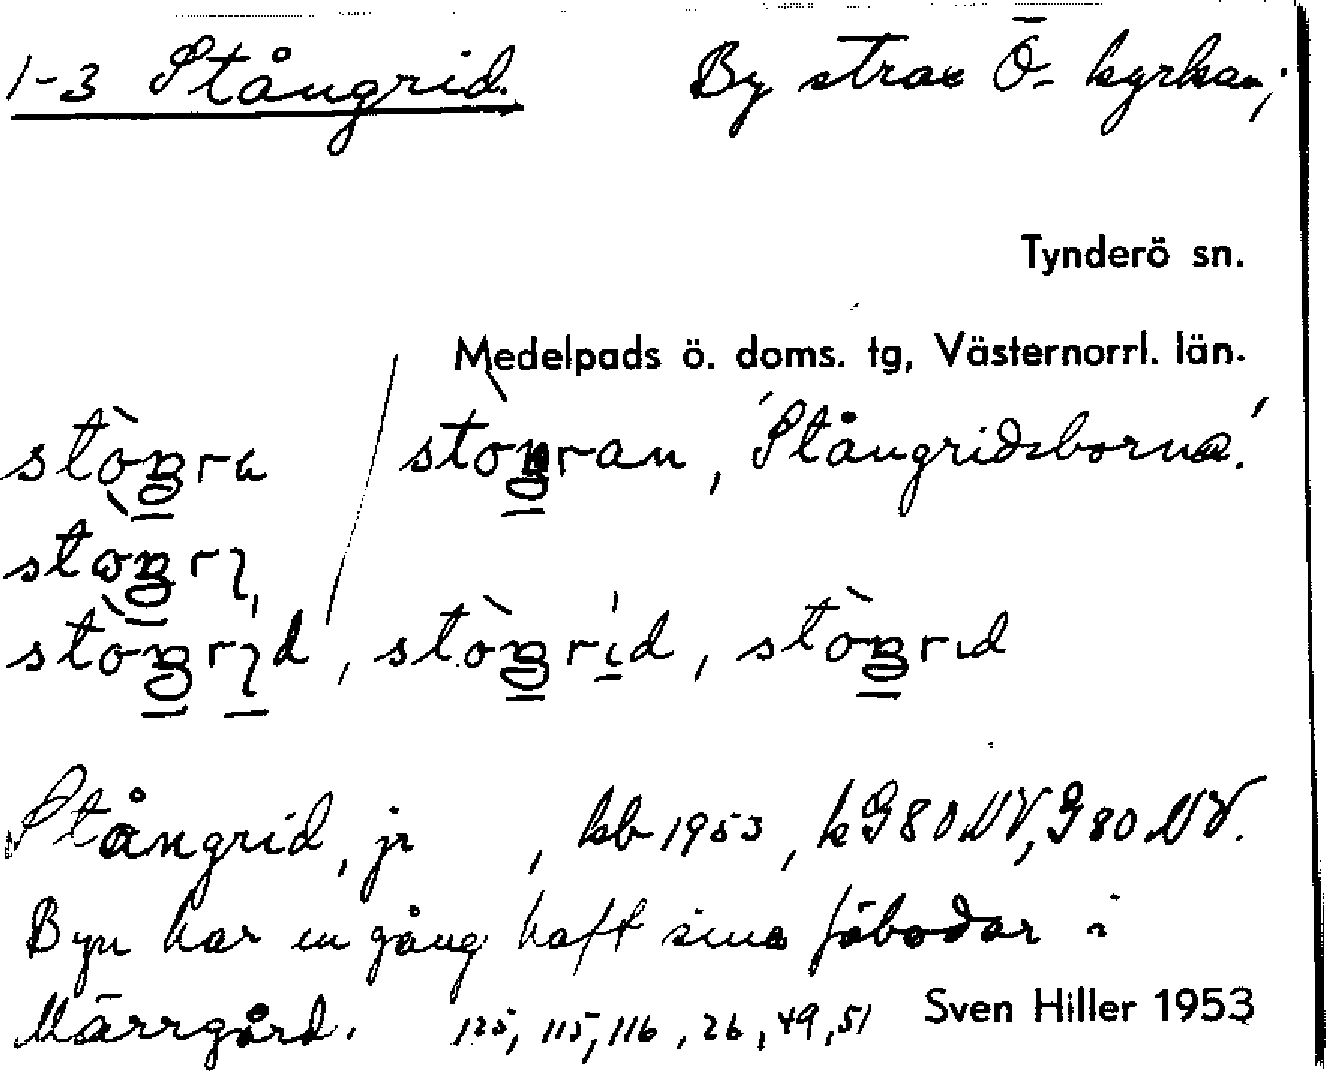 1-3 Stångrid. By strax Ö. kyrkan;
Tynderö sn.
Medelpads ö. doms. tg, Västernorrl. län.
stòŋra / stòŋran, 'Stångridsborna.'
stòŋrı
stòŋrıd, stòŋrid, stòŋrıd
Stångrid, jr , kb 1953, kG80NV, G80NV.
Byn har en gång haft sina fäbodar i
Märrgård. 125, 115, 116, 26, 49, 51 Sven Hiller 1953